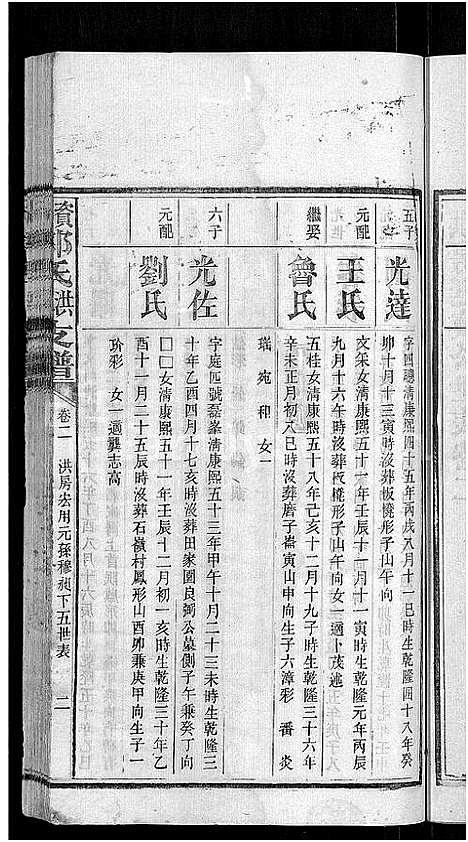 五子
光達
字四聰清康熙四十五年丙戌八月十一巳時生乾隆四十八年癸
卯十月十三寅時沒葬板橙形子山午向
元配
王氏
文采女清康熙五十一年壬辰十月十一寅時生乾隆元年丙辰
九月十六午時沒葬板橙形子山午向女一適卜茂述
繼娶
魯氏
五桂女清康熙五十八年己亥十二月十九子時生乾隆三十六年
辛未正月初八巳時沒葬磨子崙寅山申向生子六漳彩 番炎
瑞宛和女一
六子
光佐
字庭四號磊峯清康熙五十三年甲午十月二十三未時生乾隆三
十年乙酉四月十七亥時沒葬田家園良弼公墓側子午兼癸丁向
元配
劉氏
□□女清康熙五十一年壬辰十二月初一亥時生乾隆三十年乙
酉十一月二十五辰時沒葬石嶺村鳳形山酉卯兼庚甲向生子一
玠彩 女一適龔志高
氏洪支譜 卷二 洪房宏用元孫穆昶下五世表 二